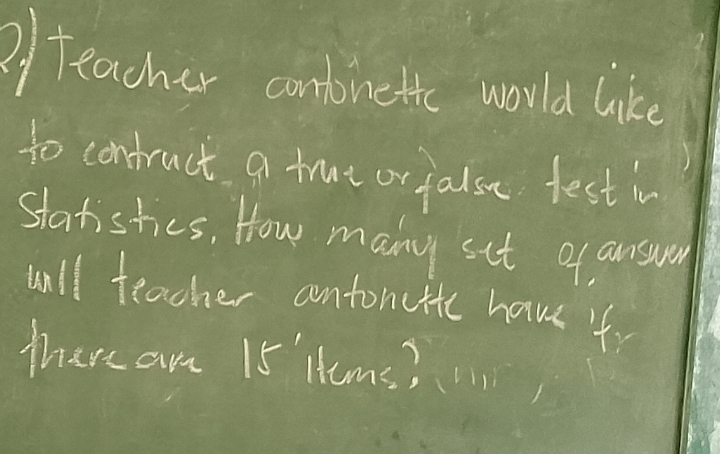 2.) Teacher antonette would like
to contruct a true or false test in
Statistics. How many set of answer
will teacher antonette have if
there are 15 items?